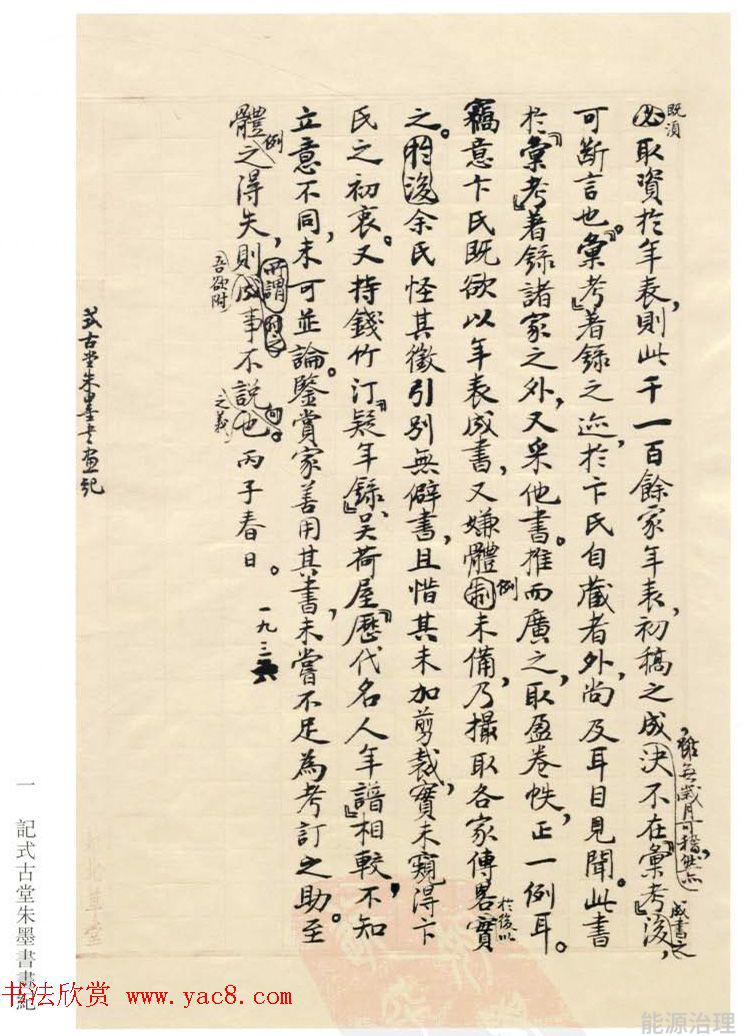 既須
必取資於年表,則此千一百餘家年表,初稿之成決不在『彙考』後,
雖無歲月可稽,然亦
成書之
可斷言也。『彙考』著錄之迹,於卞氏自藏者外,尚及耳目見聞。此書
於『彙考』著錄諸家之外,又采他書。推而廣之,取盈卷帙,正一例耳。
竊意卞氏既欲以年表成書,又嫌體制未備,乃撮取各家傳畧實
例
於後以
之。昨後余氏怪其徵引別無僻書,且惜其未加剪裁,實未窺得卞
氏之初衷。又持錢竹汀『疑年錄』、吴荷屋『歷代名人年譜』相較,不知
立意不同,未可並論。鑒賞家善用其書,未嘗不足為考訂之助。至
體之得失,則所謂成事不說也丙子春日。
例
吾欲附
之義
一九三六
式古堂朱墨書畫記
一 記式古堂朱墨書畫紀
书法欣赏 www.yac8.com
能源治理